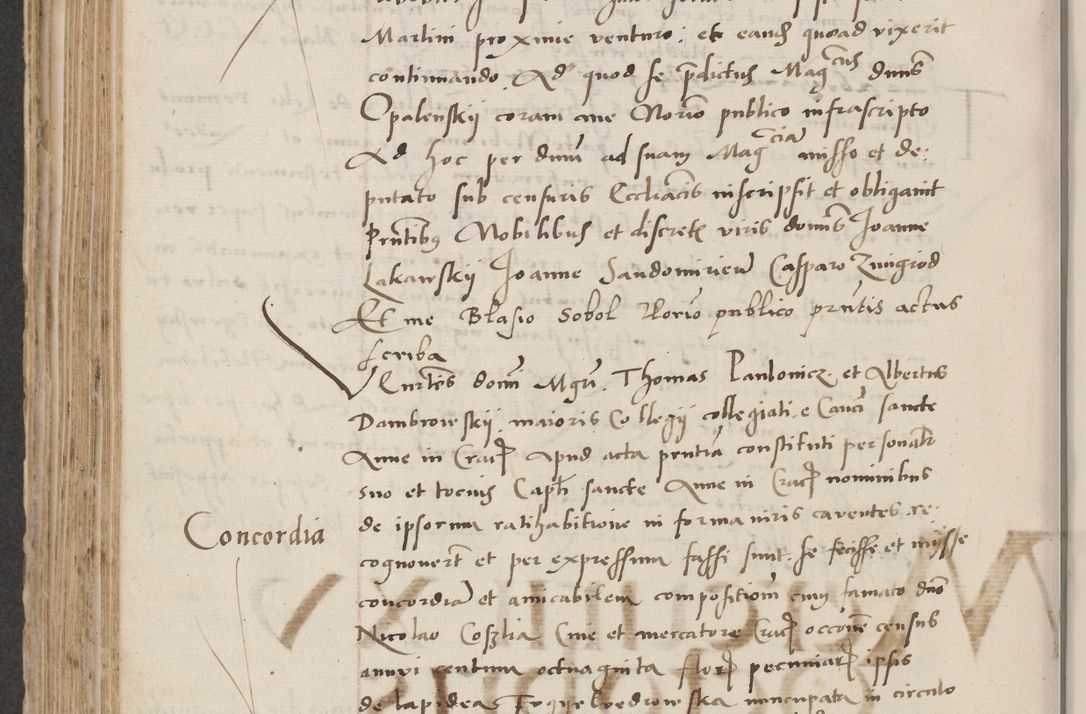 Martini proxime venturo. et eandem quoad vixerit
continuando. Ad quod se prdictus Magcus dnus
Opalenskÿ coram me Notrio publico infrascripto
Ad hoc per dnum ad suam Magciam misso et de-
putato sub censuris Ecclesiacis inscripsit et obligauit
Prntibus Nobilibus et discretis viris dominis Joanne
Lakawskÿ Joanne Sandomirien Casparo Zmigrod
Et me Blasio Sobol Notrio publico prntis actus
scriba
domi Mgri. Thomas Paulonicz. et Albertus
Dambrowskÿ. maioris Collegÿ collegiati. e Canci sancte
Anne in Crac Apud acta prntia constituti personalr
suo et tocius Capli sancte Anne in Crac nominibus
de ipsorum ratihabitione in forma iuris caventes. re-
cognouert et per expressum fassi sunt. se fecisse et inÿsse
Concordia
concordia et amicabilem compositiom cum famato dno
Nicolao Coszlia Cive et mercatore Crac occoie census
annui centum octuaginta flor pecuniar ipsis
de lapidea nuncupata in circulo